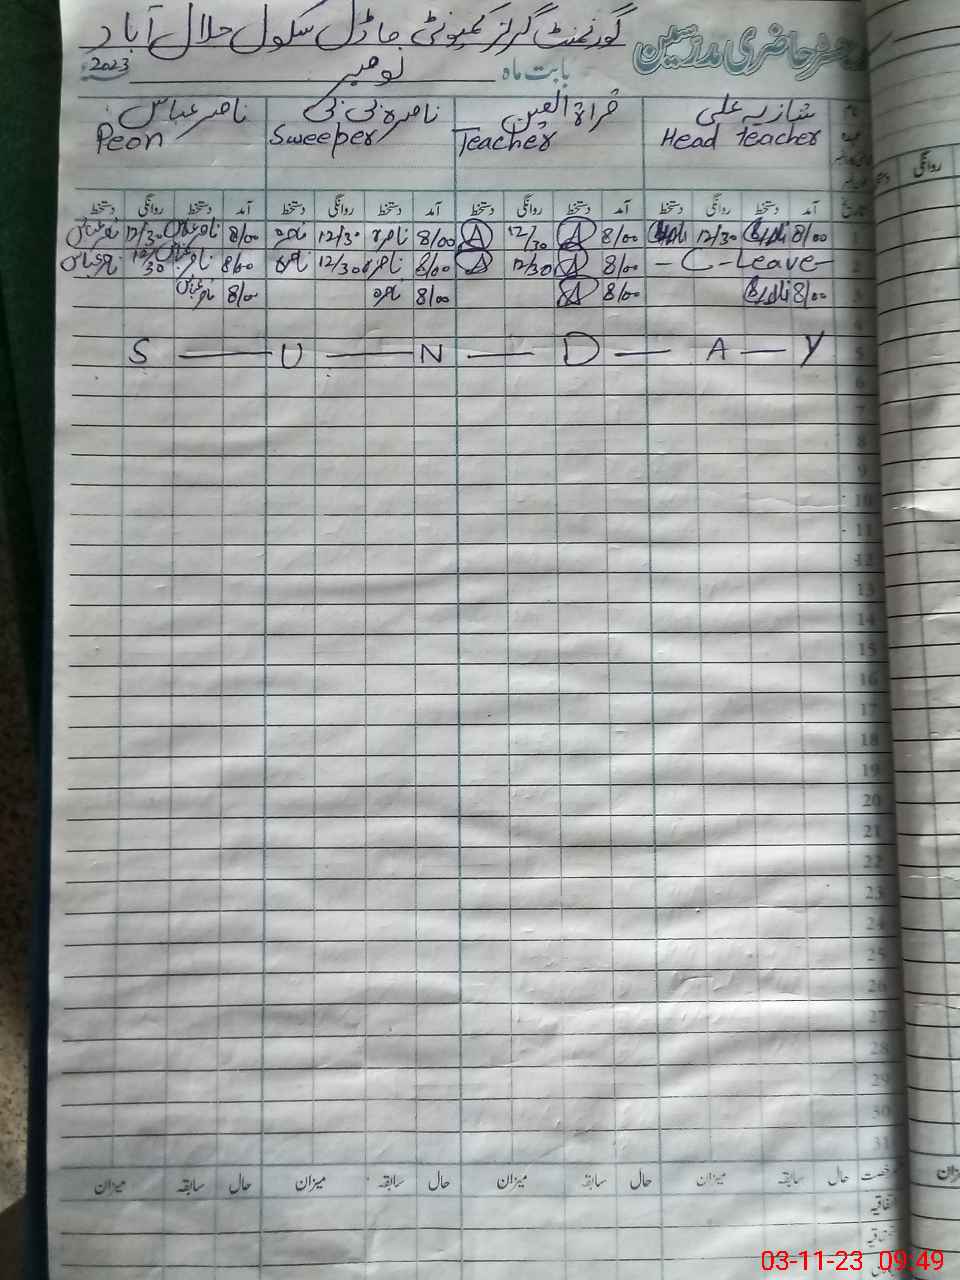 رجسٹر حاضری مدرسین گورنمنٹ گرلز کمیونٹی ماڈل سکول جلال آباد
بابت ماہ نومبر 2023ء
شازیہ علی قراۃ العین ناصرہ بی بی ناصر عباس
Head Teacher Teacher Sweeper Peon
تاریخ آمد دستخط روانگی دستخط آمد دستخط روانگی دستخط آمد دستخط روانگی دستخط آمد دستخط روانگی دستخط
1 8/00 12/30 8/00 12/30 8/00 ناصرہ 12/30 ناصرہ 8/00 ناصر عباس 12/30 ناصر عباس
2 - C - Leave - 8/00 12/30 8/00 ناصرہ 12/30 ناصرہ 8/00 ناصر عباس 12/30 ناصر عباس
3 8/00 8/00 8/00 ناصرہ 8/00 ناصر عباس
4
5 S — U — N — D — A — Y
6
7
8
9
10
11
12
13
14
15
16
17
18
19
20
21
22
23
24
25
26
27
28
29
30
31
رخصت حال سابقہ میزان حال سابقہ میزان حال سابقہ میزان حال سابقہ میزان
اتفاقیہ
03-11-23 09:49